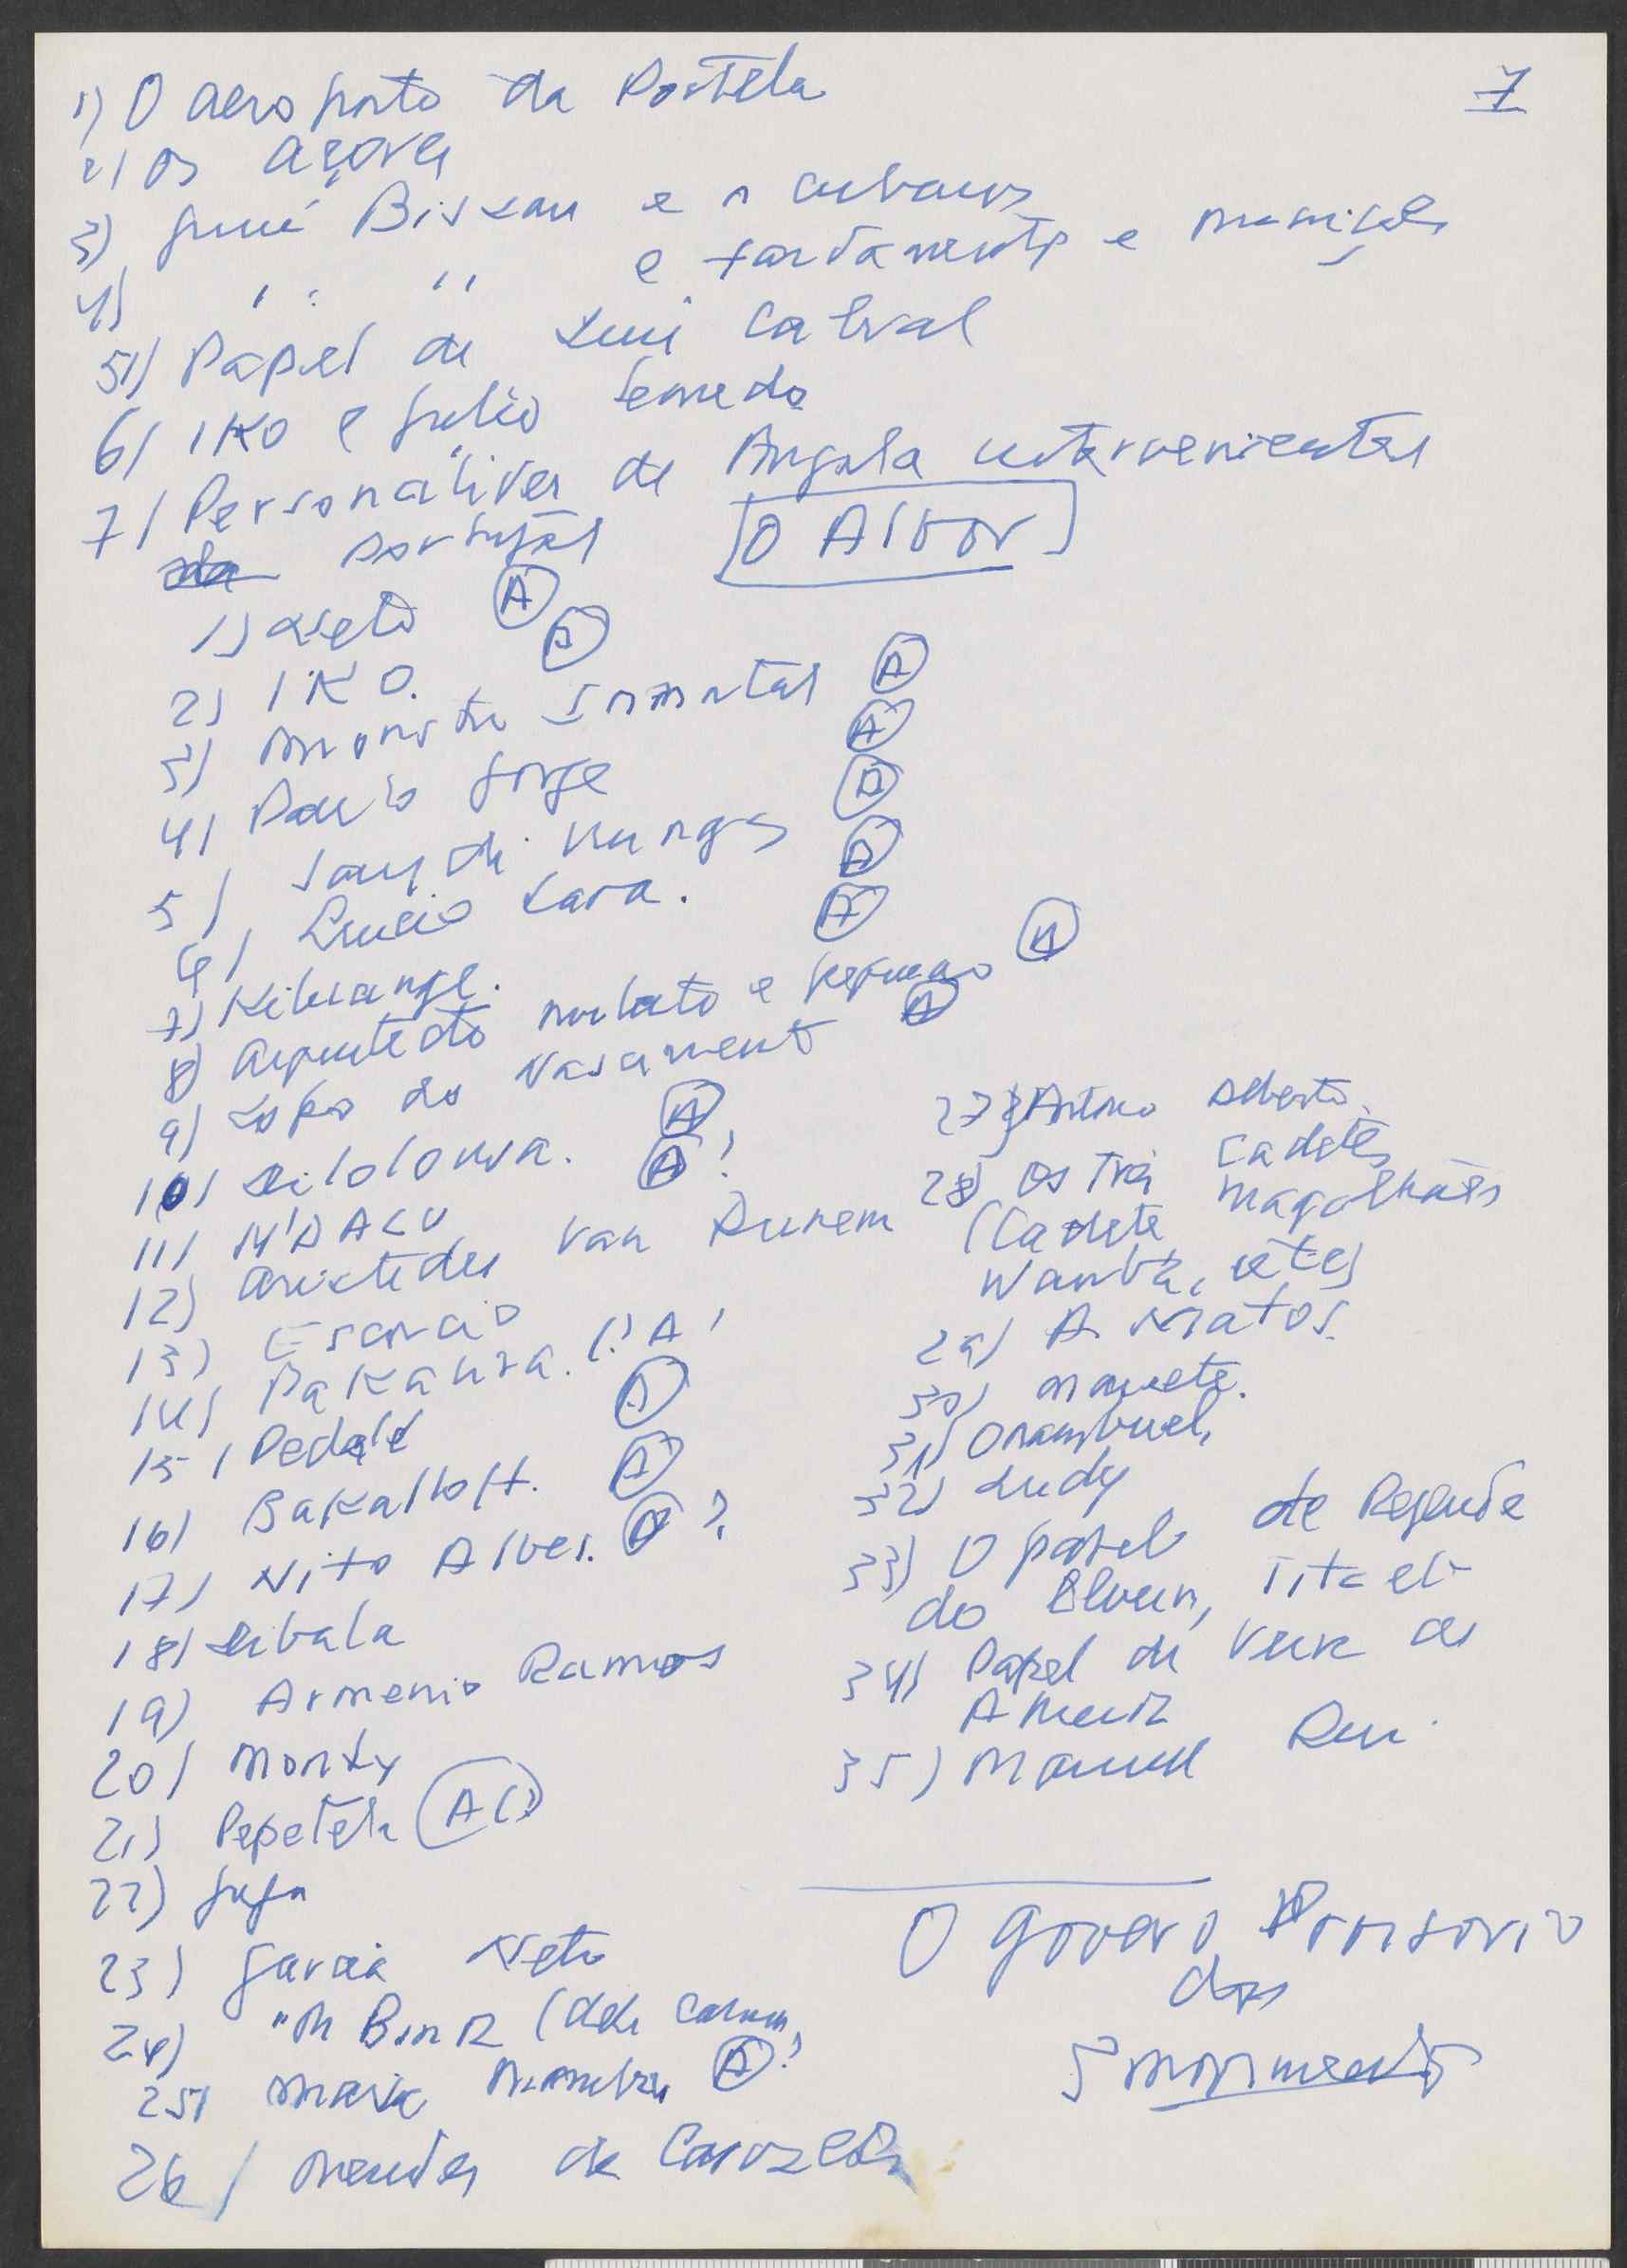 7
1) O aeroporto da Portela
2) Os açores
3) Guiné Bissau e os cubanos
4) " " " e fardamento e munições
5) Papel de Luis Cabral
6) IKO e Julio Semedo
7) Personalides de Angola intervenientes
da Portugal [O Alvor]
1) Neto (A)
2) IKO. (A)
3) Monstro Immortal (A)
4) Paulo Jorge (A)
5) Saydi Mingas (A)
6) Lucio Lara. (A)
7) Kiluange. (A)
8) Arquitecto mulato e pequeno (A)
9) Lopo do Nascimento (A)
10) Dilolowa. (A)
11) N'DALU (A)?
12) Aristides Van Dunem
13) Escorcio
14) Pakauza. (? A)
15) Pedalé (A)
16) Bakaloff. (A)
17) Nito Alves. (A)?
18) Dibala
19) Armenio Ramos
20) Monty
21) Pepetela (A (?))
22) Juju
23) Garcia Neto
24) "M (dede
25) Maria Mambo (A)?
26) Mendes de Carvalho
27) Artur Alberto
28) Os Três Cadetes
(Cadete Magalhães
Wamba, etc)
29) A Matos.
30) Maneta.
31) Onambwe,
32) Ludy
33) O papel de Resende
do Tita etc
34) Papel da Vera de
Almeida
35) Manuel Rui.
O Governo Provisorio
dos
3 movimentos